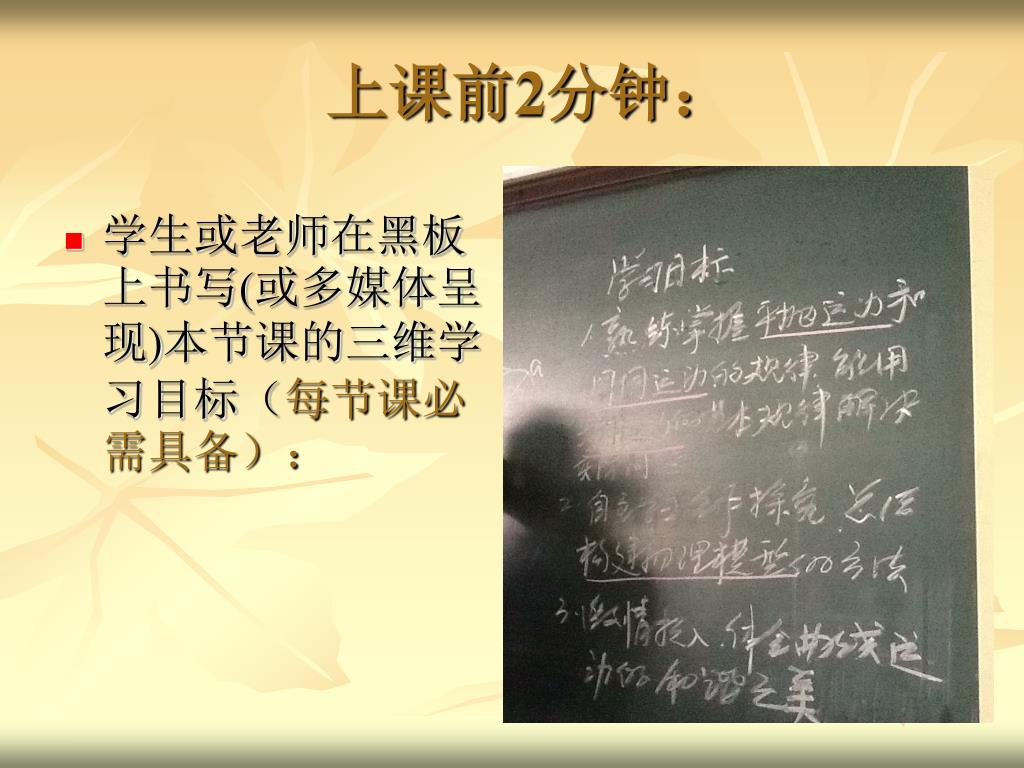 上课前2分钟：
学生或老师在黑板
上书写(或多媒体呈
现)本节课的三维学
习目标（每节课必
需具备）：
学习目标
1、熟练掌握平抛运动和
圆周运动的规律.能用
的基本规律解决
实际问
a
2、自主 探究.总结
构建物理模型的方法
3、激情投入.体会曲线运
动的和谐之美